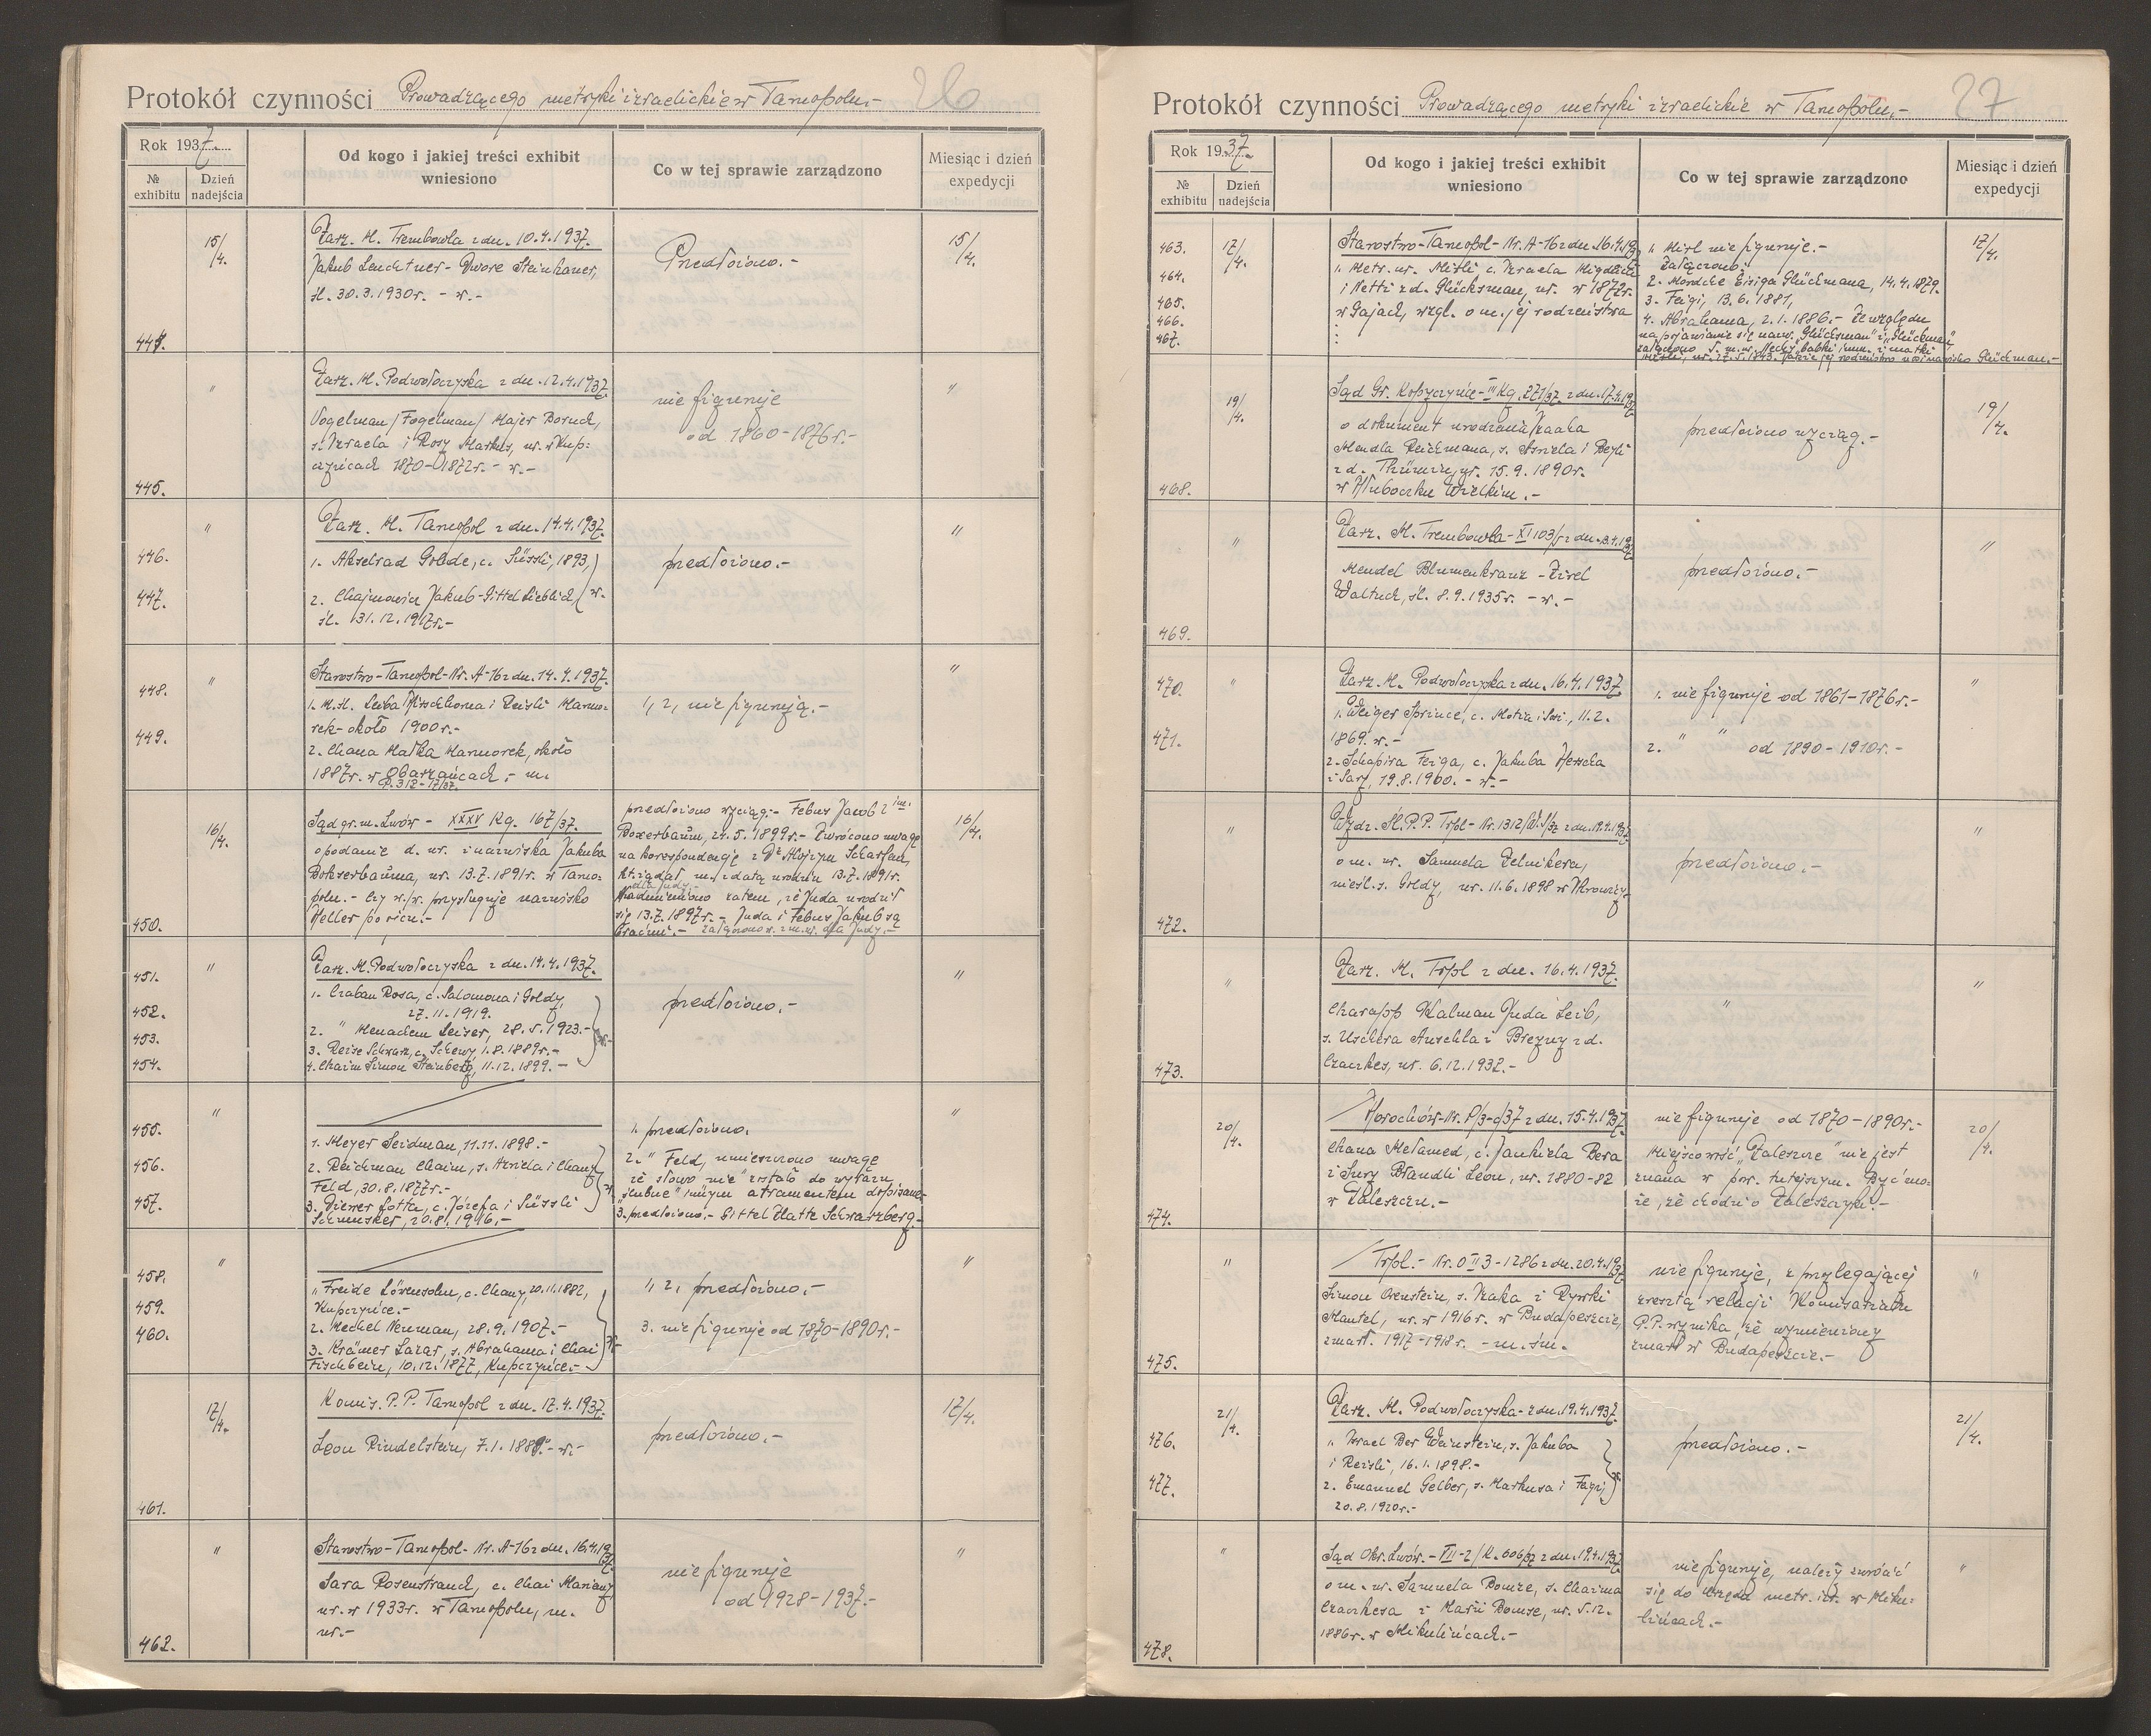 Protokół czynności Prowadzącego metryki izraelickie w Tarnopolu.- 26
Rok 1937.
Od kogo i jakiej treści exhibit wniesiono
Co w tej sprawie zarządzono
Miesiąc i dzień expedycji
№ exhibitu
Dzień nadejścia
15/4.
Zarz. M. Trembowla z dn. 10.4.1937.
Jakub Leuchtner - Dwore Steinhauer,
śl. 30.3.1930r. - w.-
Przedłożono.-
15/4.
444.
"
Zarz. M. Podwołoczyska z dn. 12.4.1937.
Vogelman /Fogelman/ Majer Boruch,
s. Izraela i Rozy Markus, ur. w Kup:
czyńcach 1870-1872r. - w.-
nie figuruje
od 1860-1876r.-
"
445.
"
Zarz. M. Tarnopol z dn. 14.4.1937.
446.
1. Akselrad Golde, c. Süssli, 1893,
447.
2. Chajmowicz Jakub-Gittel Lieblich, w.-
śl. 31.12.1917r.-
przedłożono.-
"
"
Starostwo-Tarnopol-Nr. A-16 z dn. 14.4.1937.
448.
1. M.śl. Leiba Hirschhorna i Reisli Marmo-
rek- około 1900r.-
449.
2. Chana Malka Marmorek, około
1887r. w Obarzańcach.- m.
P. 312-17/37.
1, 2, nie figurują.-
"
16/4.
Sąd gr. m. Lwów - XXXV Kg. 167/37.
o podanie d. ur. i nazwiska Jakuba
Bokserbauma, ur. 13.7.1891r. w Tarno-
polu.- Czy w/w. przysługuje nazwisko
Heller po ojcu.-
450.
przedłożono wyciąg.- Febus Jacob 2 im.
Boxerbaum, 24.5.1899r.- Zwrócono uwagę
na korespondencję z Dr Mojżym Scharfem,
kt. żądał m. z datą urodzin 13.7.1891r.
dla Judy.-
Nadmieniono zatem, że Juda urodził
się 13.7.1897r.- Juda i Febus Jakub są
braćmi.- załączono w. z m. ur. dla Judy.-
16/4.
451.
"
Zarz. M. Podwołoczyska z dn. 14.4.1937.
1. Czaban Rosa, c. Salomona i Goldy,
27.11.1919.
452.
2. " Menachem Leiser, 28.5.1923.-
453.
3. Reise Schwarz, c. Schewy, 1.8.1889r.-
454.
4. Chaim Simon Steinberg, 11.12.1899.-
w.-
przedłożono.-
"
"
455.
1. Meyer Seidman, 11.11.1898.-
456.
2. Reichman Chaim, s. Azriela i Chany
Feld, 30.8.1877r.-
457.
3. Diener Lotta, c. Józefa i Süssli
Schmusker, 20.8.1916.-
1. przedłożono.
2. " Feld, umieszczono uwagę
że słowo nie" zostało do wyrazu
ślubne" innym atramentem dopisane-
3. przedłożono.- Gittel Hatte Schwarzberg.-
"
458.
"
1. Freide Lövensohn, c. Chany, 20.11.1882,
Kupczyńce.-
459.
2. Mechel Neuman, 28.9.1907.-
460.
3. Krämer Lazar, s. Abrahama i Chai
Fischbein, 10.12.1877, Kupczyńce.-
w.-
1, 2, przedłożono.-
3. nie figuruje od 1870-1890r.-
"
17/4.
Komis. P.P. Tarnopol z dn. 17.4.1937.
Leon Rindelstein, 7.1.1889.- w.-
przedłożono.-
17/4.
461.
"
Starostwo-Tarnopol- Nr. A-16 z dn. 16.4.1937.
Sara Rosenstrauch, c. Chai Mariany,
ur. w 1933r. w Tarnopolu, m.
ur.-
nie figuruje
od 1928-1937.-
"
462.
Protokół czynności Prowadzącego metryki izraelickie w Tarnopolu.- 27
Rok 1937.
Od kogo i jakiej treści exhibit wniesiono
Co w tej sprawie zarządzono
Miesiąc i dzień expedycji
№ exhibitu
Dzień nadejścia
463.
464.
465.
466.
467.
17/4.
Starostwo-Tarnopol-Nr. A-16 z dn. 16.4.1937.
1. Metr. ur. Mirli, c. Izraela
i Netti z d. Glücksman, ur. w 1872r.
w Gajach, wzgl. o m. jej rodzeństwa
1. Mirl nie figuruje.-
Załączono:
2. Mordche Eisiga Glückmana, 14.4.1879.
3. Feigi, 13.6.1881,
4. Abrahama, 2.1.1886.- Ze względu
na pojawianie się nazw. "Glücksman" i "Glückman"
załączono 5. m. ur. Nechy, babki i mn. i matki
Mirli, ur. 17.5.1843. Także jej rodzeństwo nosi nazwisko Glückman.-
17/4.
19/4.
Sąd Gr. Kopyczyńce-III Kg. 271/37. z dn. 17.4.1937.
o dokument urodzenia Izaaka
Mendla Reichmana, s. Asriela i Beyli
z d. Thürmer, ur. 15.9.1890r.
w Hłuboczku Wielkim.-
468.
przedłożono wyciąg.-
19/4.
"
Zarz. M. Trembowla-XI 103/5 z dn. 13.4.1937.
Mendel Blumenkranz-Zirel
Waltuch, śl. 8.9.1935r. - w.-
469.
przedłożono.-
"
470.
"
Zarz. M. Podwołoczyska z dn. 16.4.1937.
1. Weiger Sprince, c. Motia i Sosi, 11.2.
471.
1869. w.-
2. Schapira Feiga, c. Jakuba Herscha
i Sary, 19.8.1900. - w.-
1. nie figuruje od 1861-1876r.-
2. " " od 1890-1910r.-
"
"
Wydz. Śl. P.P. Trpl- Nr. 1312/W.S/37 z dn. 19.4.1937.
o m. ur. Samuela Zelnikera,
nieśl. s. Goldy, ur. 11.6.1898 w Ihrowicy.-
472.
przedłożono.-
"
"
Zarz. M. Trpl z dn. 16.4.1937.
Charapp Kalman Juda Leib,
s. Uschera Anschla i Brejny z d.
Czaczkes, ur. 6.12.1932.-
473.
"
"
20/4.
Horochów-Nr. P/3-c/37 z dn. 15.4.1937.
Chana Melamed, c. Jankiela Bera
i Sury Brandli Leon, ur. 1880-82
w Zaleszczu.-
474.
nie figuruje od 1870-1890r.-
Miejscowość "Zaleszcze" nie jest
znana w pow. tutejszym. Być mo:
że, że chodzi o Zaleszczyki.-
20/4.
"
Trpl.- Nr. O II 3-1286 z dn. 20.4.1937.
Simon Orenstein, s. Izaka i Rywki
Mantel, ur. w 1916r. w Budapeszcie,
zmarł 1917-1918r. - m. śm.
475.
nie figuruje, z przylegającej
zresztą relacji Komisariatu
P.P. wynika, że wymieniony
zmarł w Budapeszcie.-
"
21/4.
Zarz. M. Podwołoczyska- z dn. 19.4.1937.
476.
1. Israel Ber Weinstein, s. Jakuba
i Reisli, 16.1.1898.-
477.
2. Emanuel Gelber, s. Markusa i Feigi,
20.8.1920r.-
przedłożono.-
21/4.
"
Sąd Okr. Lwów.-VII-2/K. 606/37 z dn. 19.4.1937.
o m. ur. Samuela Bomze, s. Chaima
Czaczkesa i Marii Bomse, ur. 5.12.
1886r. w Mikulińcach.-
478.
nie figuruje, należy zwrócić
się do urzędu metr. izr. w Miku:
lińcach.-
"